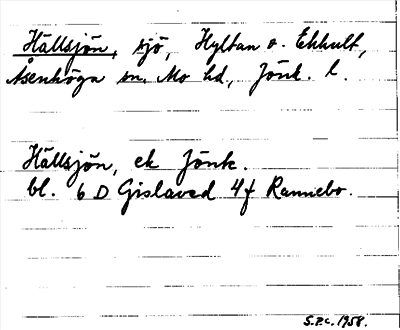 Hällsjön, sjö, Hyltan o. Ekhult,
Åsenhöga sn. Mo hd., Jönk. l.
Hällsjön, ek Jönk.
bl. 6 D Gislaved 4f Rannebo.
S.P.C. 1958.